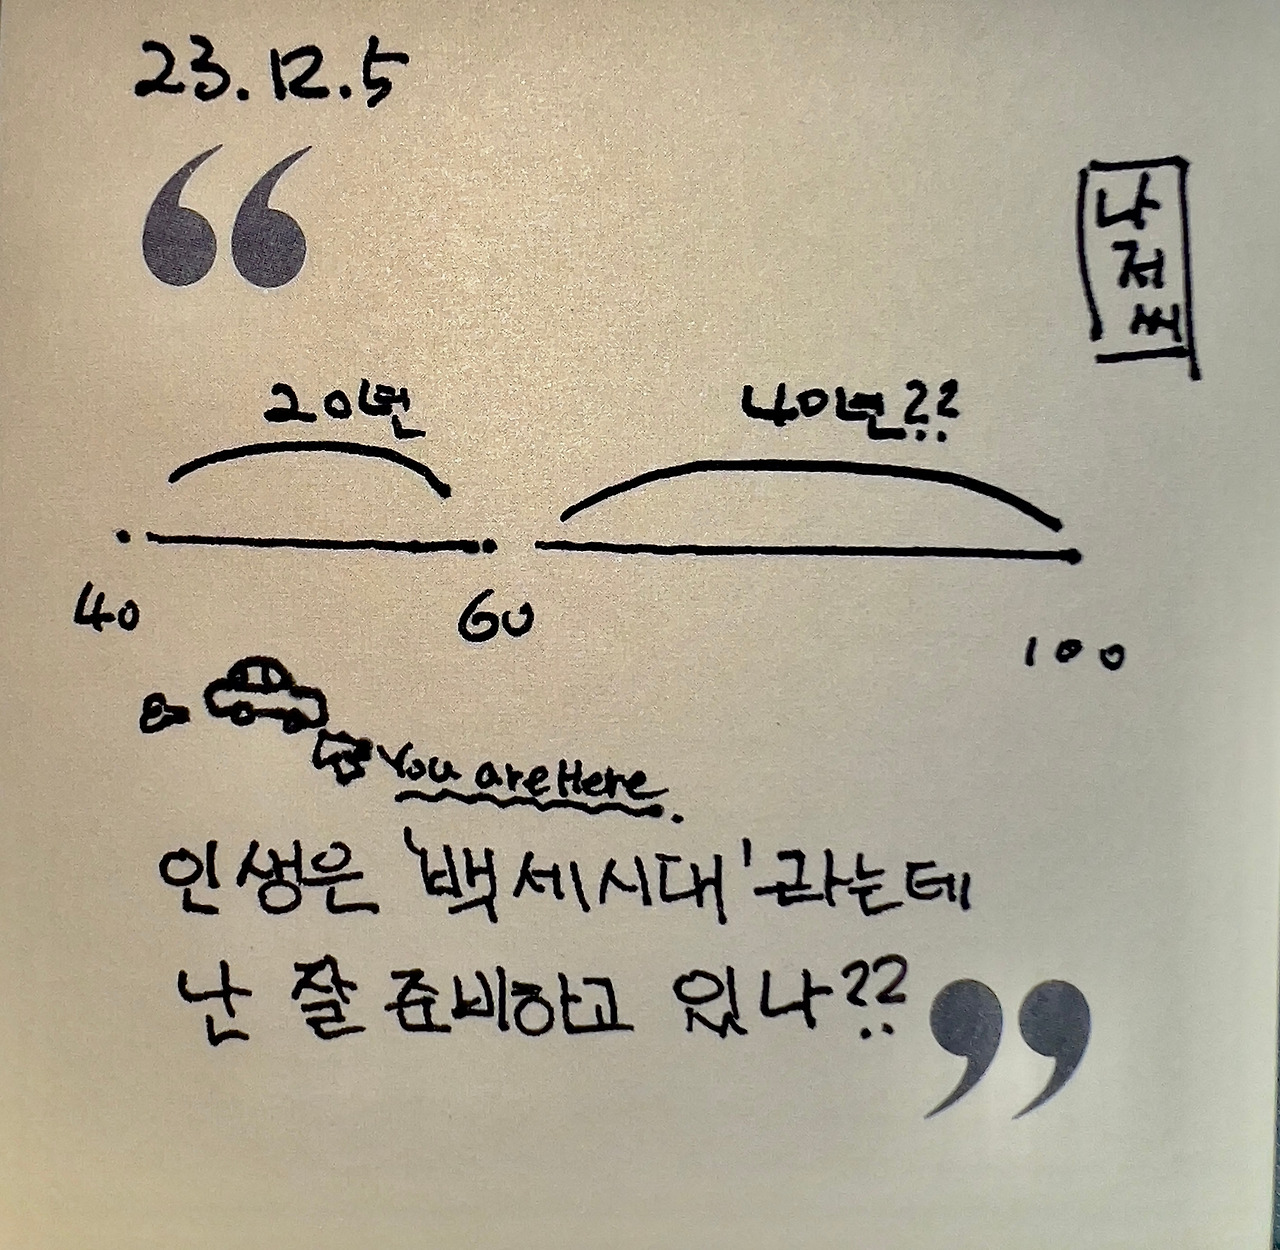 23.12.5
“
나
저
써
20년 40년??
40 60 100
You are Here.
인생은 '백세시대'라는데
난 잘 준비하고 있나??
”